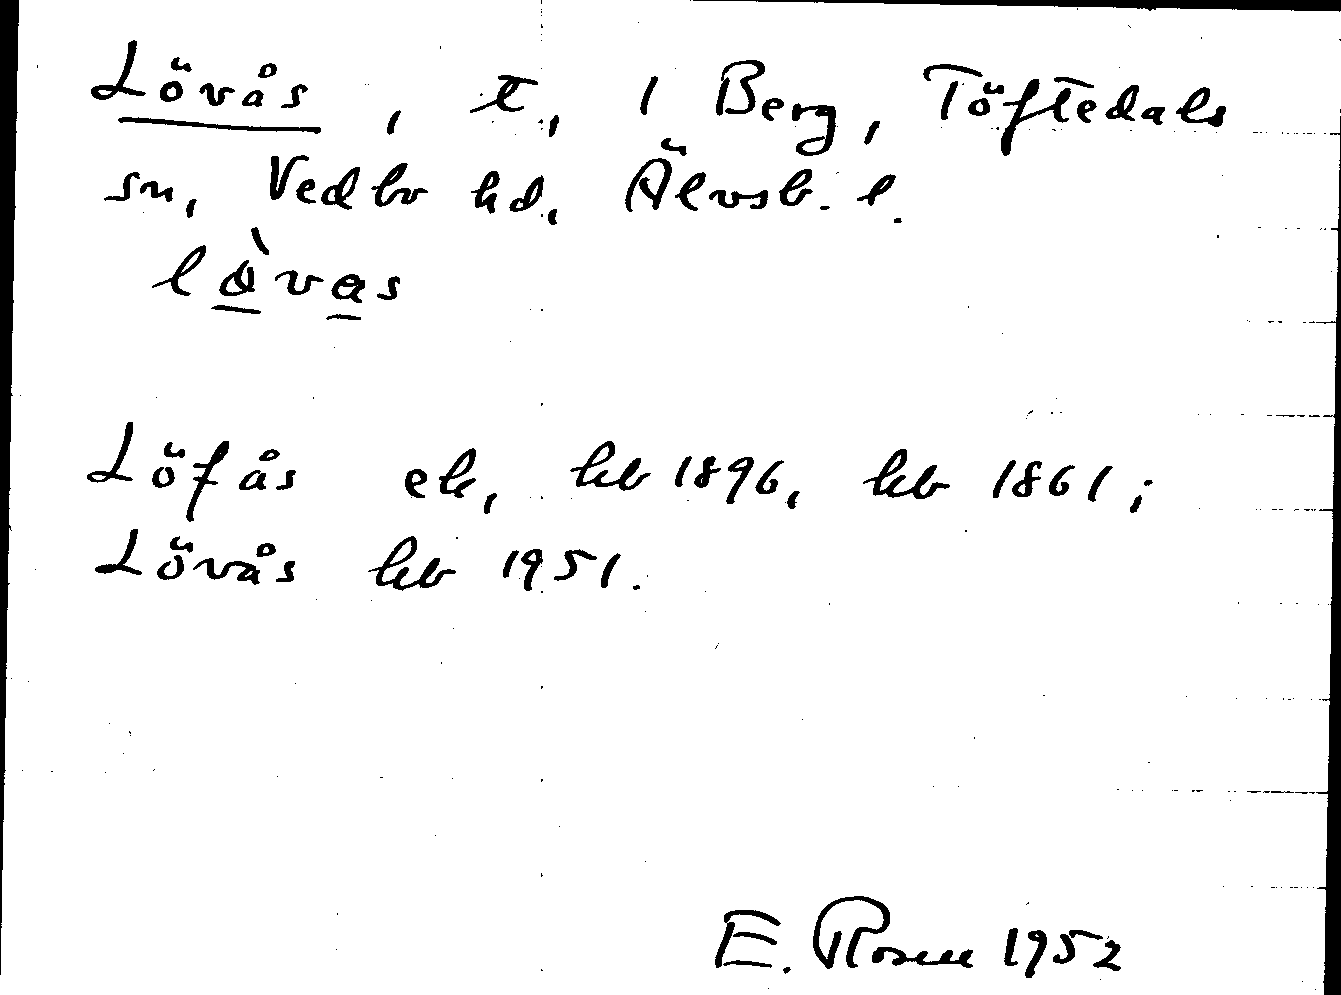 Lövås, t., 1 Berg, Töftedals
sn, Vedbo hd, Älvsb. l.
lòvas
Löfås ek, kb 1896, kb 1861;
Lövås kb 1951.
E. Rosen 1952